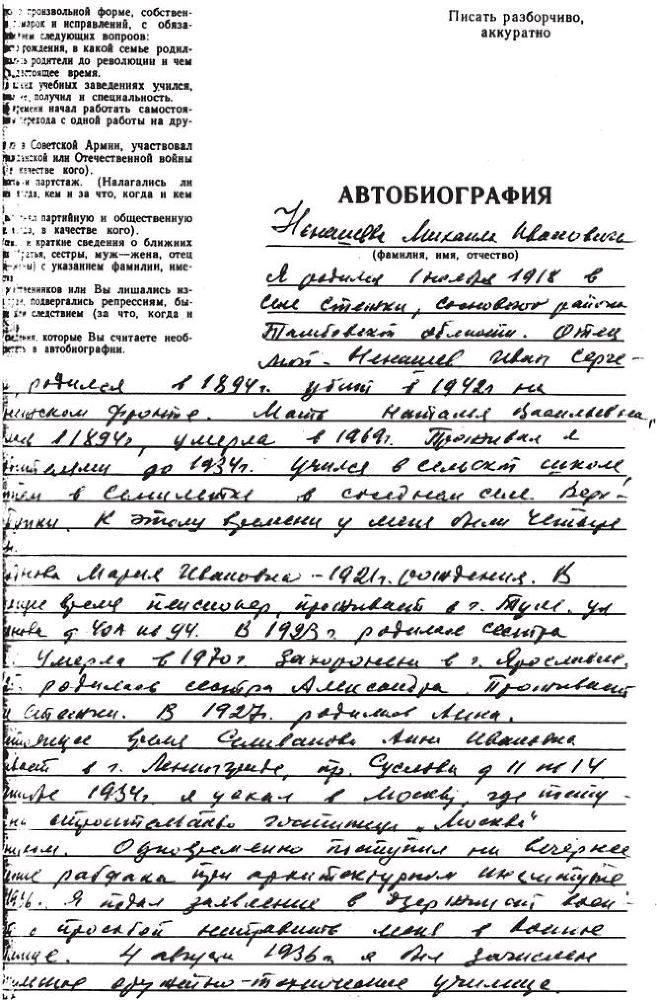 произвольной форме, собствен-
и исправлений, с обяза-
следующих вопросв:
рождения, в какой семье родил-
родители до революции и чем
настоящее время.
учебных заведениях учился,
получил и специальность.
времени начал работать самостоя-
перехода с одной работы на дру-
в Советской Армии, участвовал
или Отечественной войны
качестве кого).
и партстаж. (Налагались ли
кем и за что, когда и кем
партийную и общественную
в качестве кого).
и краткие сведения о ближних
братья, сестры, муж—жена, отец
с указанием фамилии, име-
или Вы лишались из-
подвергались репрессиям, бы-
следствием (за что, когда и
которые Вы считаете необ-
в автобиографии.
Писать разборчиво,
аккуратно
АВТОБИОГРАФИЯ
Ненашева Михаила Ивановича
(фамилия, имя, отчество)
Я родился 1 ноября 1918 в
селе Стежки, сосновского района
Тамбовской области. Отец
мой - Ненашев Иван Серге-
родился в 1894г. убит в 1942г на
фронте. Мать Наталия Васильевна,
1894г, умерла в 1969г. Проживал я
до 1934г. Учился в сельской школе,
в семилетке в соседнем селе. Верх-
К этому времени у меня были четыре
Мария Ивановна - 1921г. рождения. В
время пенсионер, проживает в г. Туле. ул
д 40А кв 94. В 1923г. родилась сестра
Умерла в 1970г. Захоронена в г. Ярославле.
родилась сестра Александра. Проживает
Стежки. В 1927г. родилась Анна.
время Селиванова Анна Ивановна
в г. Ленинграде, пр. Суслова д 11 кв 14
1934г я уехал в Москву, где посту-
на строительство гостиницы "Москва"
Одновременно поступил на вечернее
рабфака при архитектурном институте
Я подал заявление в
с просьбой направить меня в военное
4 августа 1936г я был зачислен
оружейно-техническое училище.